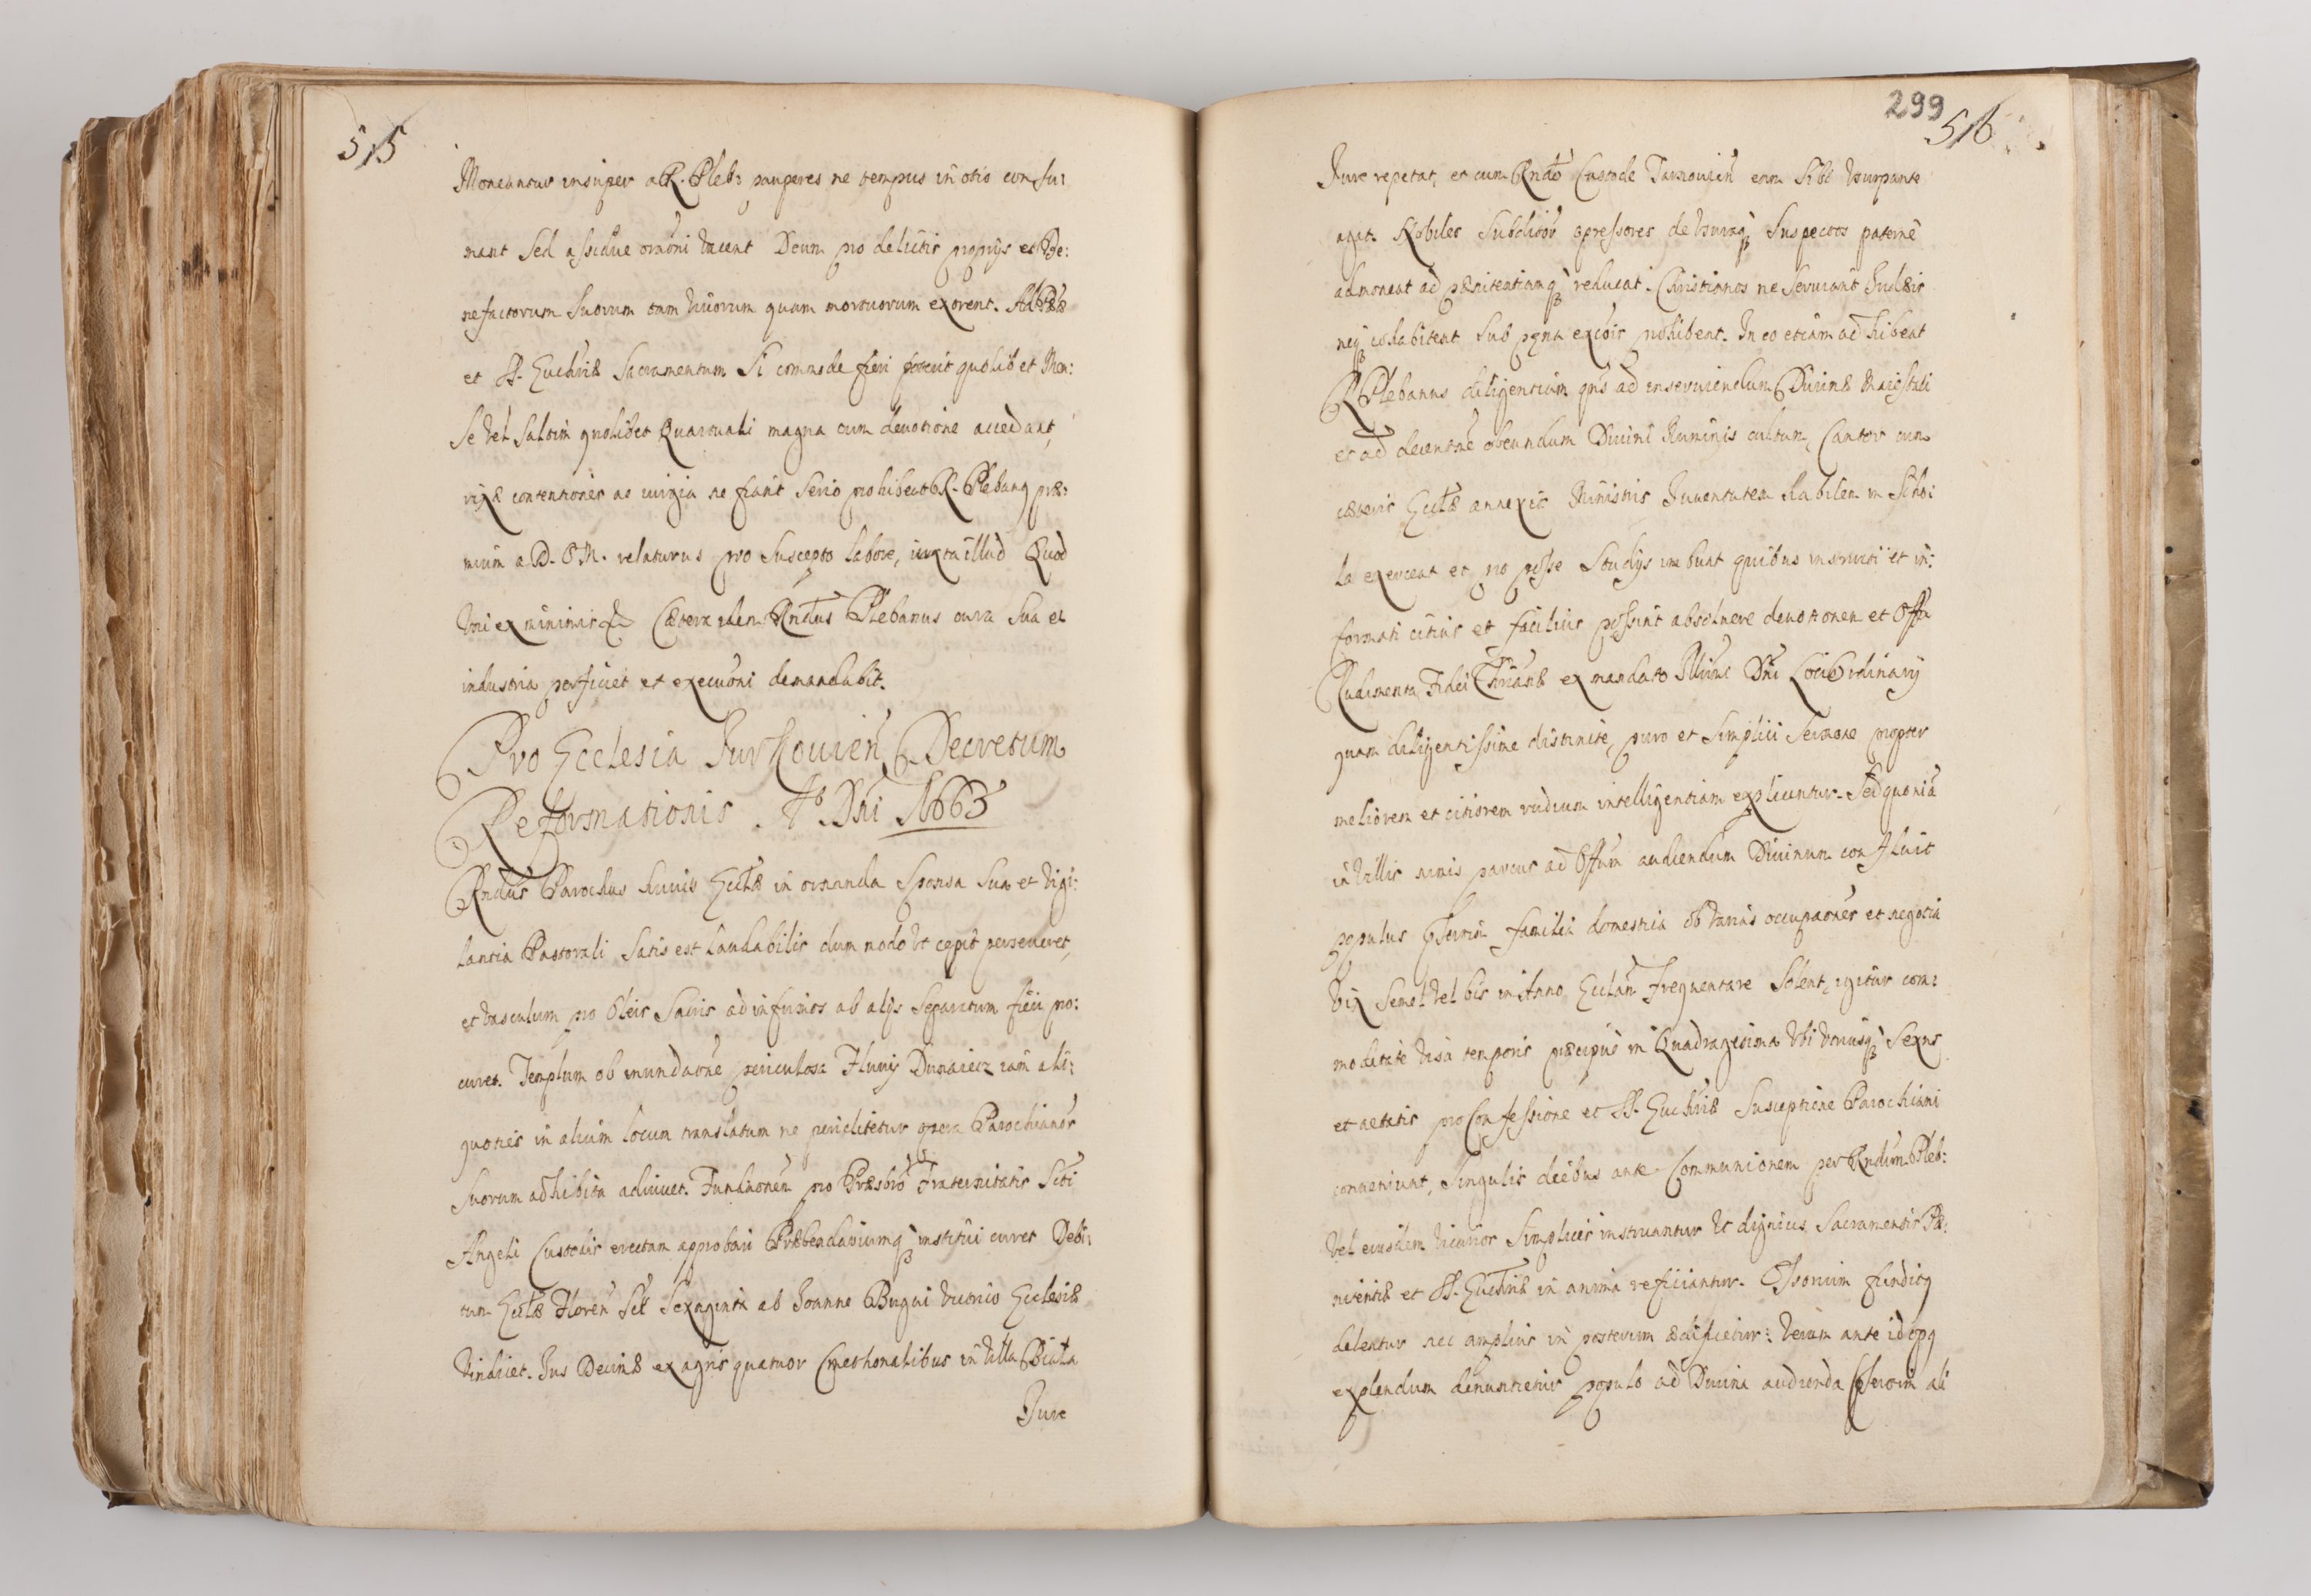 515
Moneantur insuper a R. Pleb: pauperes ne tempus in otio consu:
mant sed assidue orãoni vacent Deum pro delictis proprijs et Be:
nefactorum suorum tam vivorum quam mortuorum exorent. Ad
et SS. Euchriæ Sacramentum si commode fieri poterit quolibet Men:
se vel saltim quolibet Quartuali magna cum devotione accedant,
rixæ contentiones ac iurgia ne fiant serio prohibeat R. Plebang præ:
mium a D. O. M. relaturus pro suscepto labore, iuxta illud Quod
Uni ex minimis & Cætera idem Rndus Plebanus cura sua et
industria perficiet et executõni demandabit.
Pro Ecclesia Jurkovien Decretum
Reformationis Ao Dni 1663
Rndus Parochus huius Eccliæ in ornanda Sponsa sua et vigi:
lantia Pastorali satis est laudabilis dum modo ut cepit perseveret,
et vasculum pro Oleis Sacris ad infirmos ab alijs separatum fieri pro:
curet. Templum ob inundaõne periculosa Fluvij Dunaiecz iam ali:
quoties in alium locum translatum ne periclitetur opera Parochianor
suorum adhibita adiuvet. Fundaõnem pro Præsbro Fraternitatis Scti
Angeli Custodis erectam approbari Præbendariumq institui curet Debi:
tum Eccliæ Floren Sexaginta ab Joanne Bugai victorico Ecclesiæ
vindicet. Jus Decimæ ex agris quatuor Cmethonalibus in Villa Biała
Jure
299
516
Jure repetat, et cum Rndo Custode Tarnovien eam sibi usurpante
agat. Nobiles subditor opressores de usuraq suspectos paterne
admoneat ad pænitentiamq reducat. Christianos ne serviant Judæis
neq cohabitent sub pœna excõis prohibeat. In eo etiam adhibeat
R Plebanus diligentiam qns ad inserviendum Divinæ Maiestati
et ad decentme obeundum Divini Numinis cultum, Cantor cum
cæteris Eccliæ annexis Ministris Juventutem habilem in scho:
la exerceat et pro posse studijs imbuat quibus instructi et in:
formati citius et facilius possint absolvere devotionem et Offa
Rudimenta Fidei Chrianæ ex mandato Illmi Dni Loci Ordinarij
quam diligentissime distincte, puro et simplici sermone propter
meliorem et citiorem rudium intelligentiam explicentur. Sed quoniã
in Villis nimis parcus ad Offum audiendum Divinum confluit
populus præsertim familia domestica ob varias occupaones et negotia
vix semel vel bis in Anno Eccliam frequentare solent, igitur com:
moditate visa temporis præcipue in Quadragesima ubi utriusq Sexus
et aetatis pro Confessione et SS. Euchriæ susceptione Parochiani
conveniunt, singulis diebus ante Communionem per Rndum Pleb:
vel eiusdem vicarior simplices instruantur ut dignius Sacramentis Pæ:
nitentiæ et SS. Euchriæ in anima reficiantur. funditq
deleatur nec amplius in posterum ædificetur: verum ante id opq
explendum denuntietur populo ad Divina audienda præsertim ab